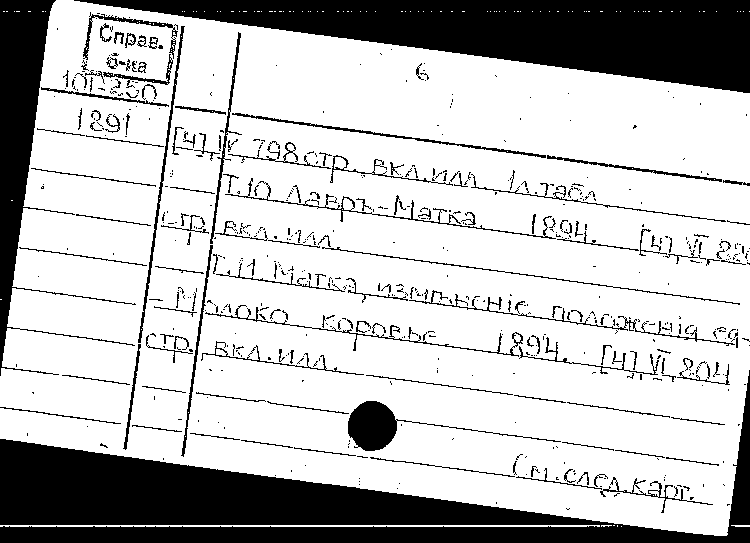 Справ.
б-ка
6
101-250
1891
[4], IV, 798 стр., вкл. илл., 1 л. табл.
Т.10 Лавръ-Матка. 1894. [4], VI, 820
стр., вкл. илл.
Т.11. Матка, измѣненіе положенія ея-
- Молоко коровье. 1894. [4], VI, 804
стр., вкл. илл.
См. след. карт.